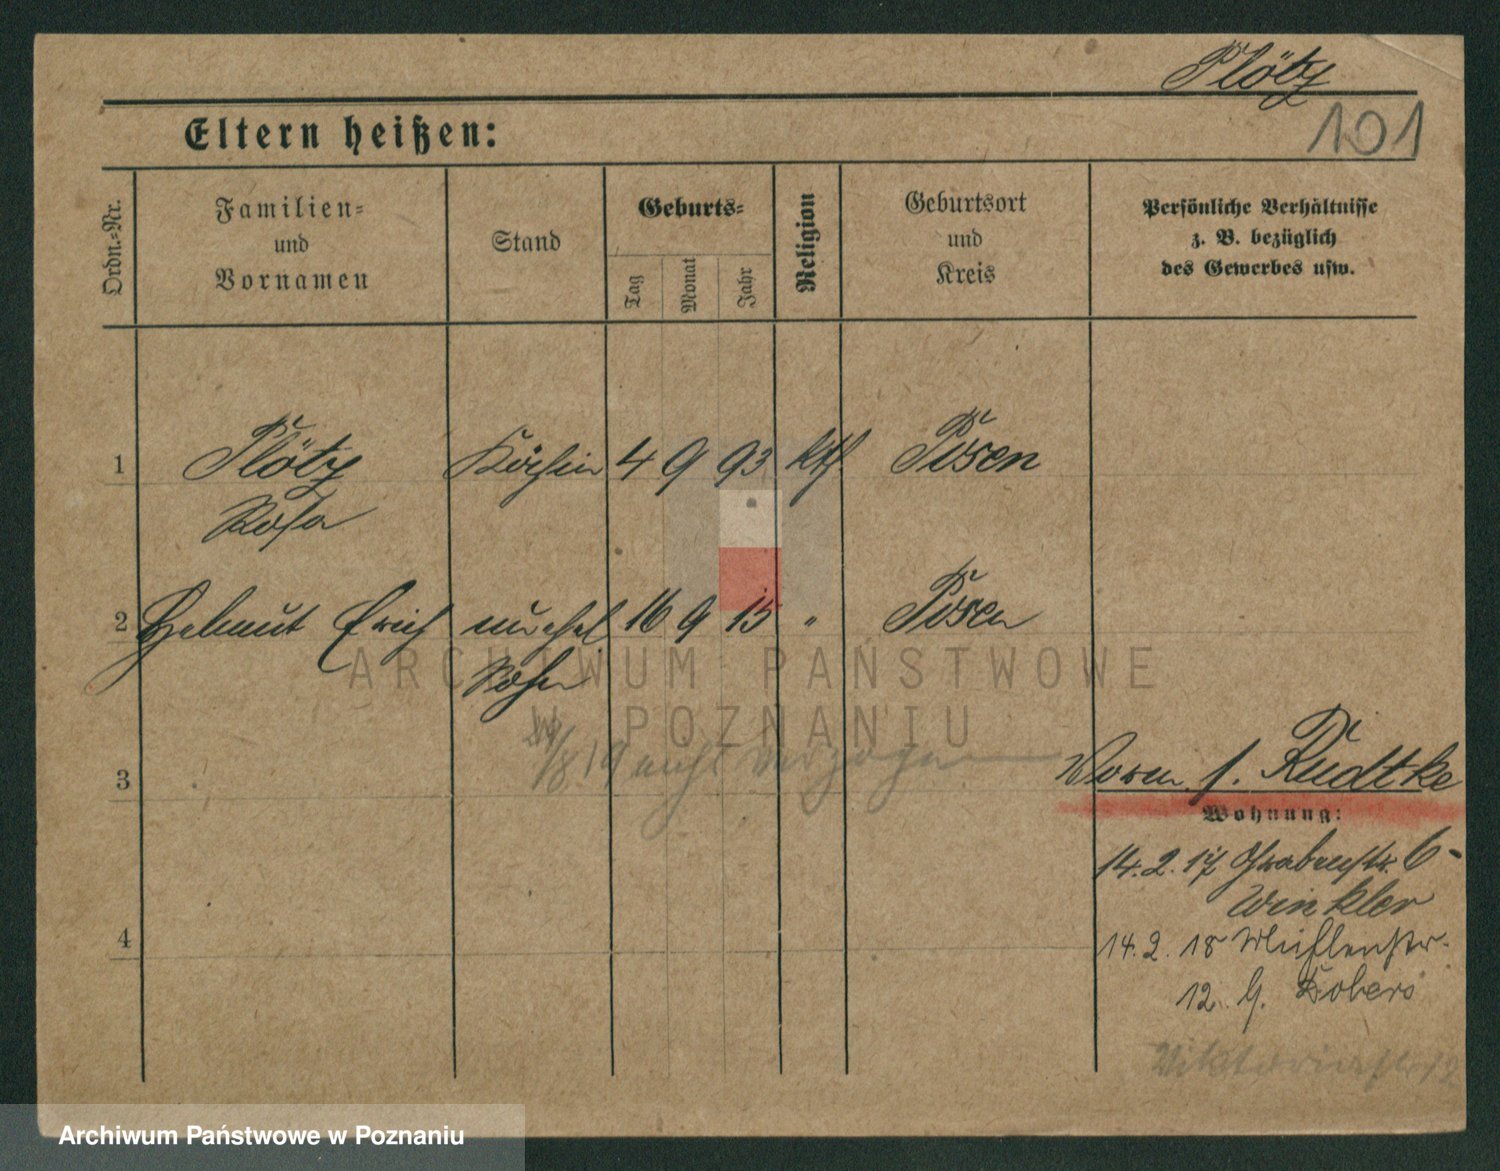 Plötz
101
Eltern heißen:
Ordn.-Nr.
Familien-
und
Vornamen
Stand
Geburts-
Tag
Monat
Jahr
Religion
Geburtsort
und
Kreis
Persönliche Verhältnisse
z. B. bezüglich
des Gewerbes usw.
1 Plötz Köchin 4 9 93 kth. Posen
Rosa
2 Helmut Erich unehel. 16 9 15 " Posen
Sohn
ARCHIWUM PAŃSTWOWE
W POZNANIU
/8.19 nicht verzogen
3
Vorm. s. Rudtke
Wohnung:
14.2.17 Grabenstr. 6-
Winkler
4
14.2.18 Mühlenstr.
12. Kobers
Viktoriastr.
Archiwum Państwowe w Poznaniu